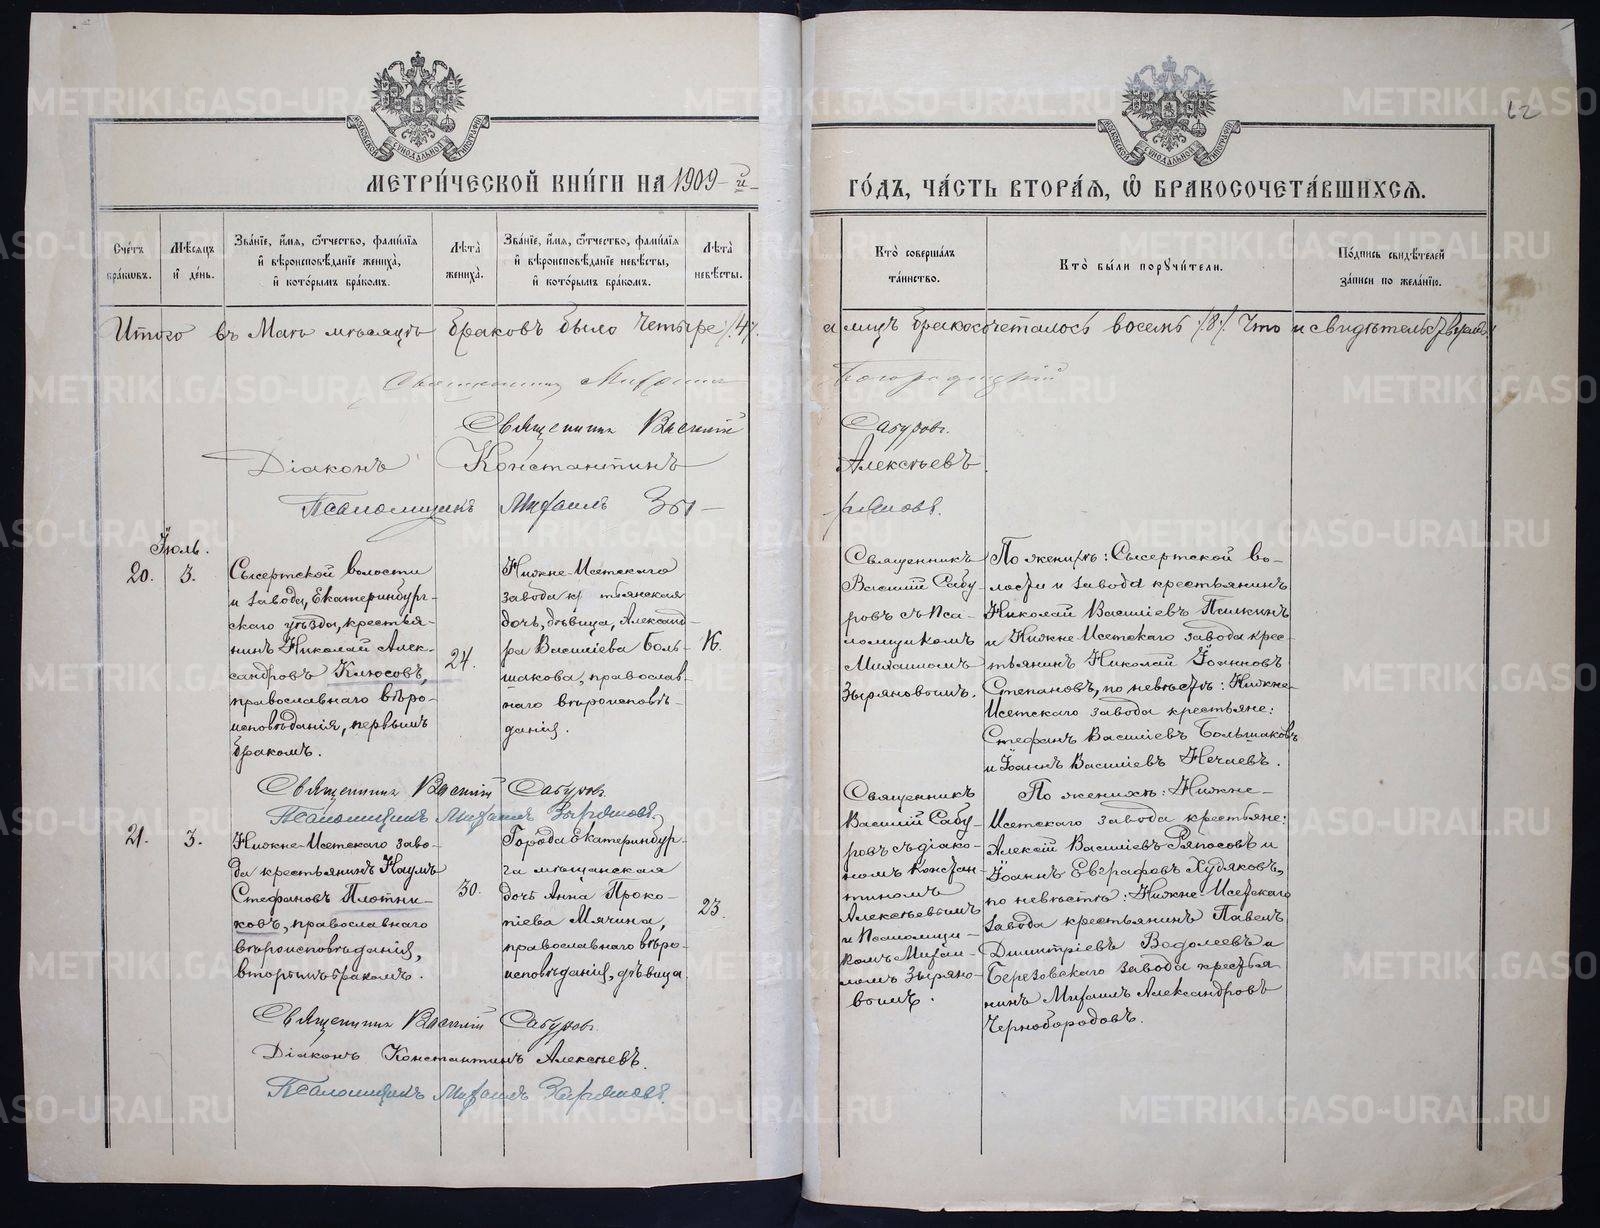 62
МЕТРИ́ЧЕСКОЙ КНИ́ГИ НА 1909-й
ГО́ДЪ, ЧА́СТЬ ВТОРА́Я, Ѡ БРАКОСОЧЕТА́ВШИХСЯ.
Сче́тъ бра́ковъ.
Мѣ́сяцъ и́ де́нь.
Зва́нїе, и́мя, ѻ҆́тчество, фами́лїя и́ вѣроисповѣ́данїе жениха̀, и́ кото́рымъ бра́комъ.
Лѣ̑та̀ жениха̀.
Зва́нїе, и́мя, ѻ҆́тчество, фами́лїя и́ вѣроисповѣ́данїе невѣ́сты, и́ кото́рымъ бра́комъ.
Лѣ̑та̀ невѣ́сты.
Кто̀ соверша́лъ та́инство.
Кто̀ бы́ли порꙋчи́тели.
По́дпись свидѣ́телей за́писи по жела́нїю.
Итого въ Маѣ мѣсяцѣ браковъ было четыре /4/.
а лицъ бракосочеталось восемь /8/. Что и свидѣтельствуемъ
Священникъ Михаилъ Богородицкій
Священникъ Василій Сабуровъ.
Діаконъ Константинъ Алексѣевъ.
Псаломщикъ Михаилъ Зы-ряновъ.
Іюль.
20.
3.
Сысертской волости
и завода, Екатеринбург-
скаго уѣзда, крестья-
нинъ Николай Алек-
сандровъ Клюсовъ,
православнаго вѣро-
исповѣданія, первымъ
бракомъ.
24.
Нижне-Исетскаго
завода крестьянская
дочь, дѣвица, Александ-
ра Василіева Боль-
шакова, православ-
наго вѣроисповѣ-
данія.
16.
Священникъ
Василій Сабу-
ровъ съ пса-
ломщикомъ
Михаиломъ
Зыряновымъ.
По женихѣ: Сысертской во-
лости и завода крестьянинъ
Николай Василіевъ Палкинъ
и Нижне-Исетскаго завода крес-
тьянинъ Николай Іоанновъ
Степановъ, по невѣстѣ: Нижне-
Исетскаго завода крестьяне:
Стефанъ Василіевъ Большаковъ
и Іоаннъ Василіевъ Нечаевъ.
Священникъ Василій Сабуровъ.
Псаломщикъ Михаилъ Зыряновъ.
21.
3.
Нижне-Исетскаго заво-
да крестьянинъ Наумъ
Стефановъ Плотни-
ковъ, православнаго
вѣроисповѣданія,
вторымъ бракомъ.
30.
Города Екатеринбур-
га мѣщанская
дочь Анна Проко-
піева Мячина,
православнаго вѣро-
исповѣданія, дѣвица
23.
Священникъ
Василій Сабу-
ровъ съ діако-
номъ Констан-
тиномъ
Алексѣевымъ
и псаломщи-
комъ Михаи-
ломъ Зыряно-
вымъ.
По женихѣ: Нижне-
Исетскаго завода крестьяне:
Алексій Василіевъ Ряпосовъ и
Іоаннъ Евграфовъ Худяковъ,
по невѣстѣ: Нижне-Исетскаго
завода крестьянинъ Павелъ
Димитріевъ Водолеевъ и
Березовскаго завода крестья-
нинъ Михаилъ Александровъ
Чернобородовъ.
Священникъ Василій Сабуровъ.
Діаконъ Константинъ Алексѣевъ.
Псаломщикъ Михаилъ Зыряновъ.
METRIKI.GASO-URAL.RU